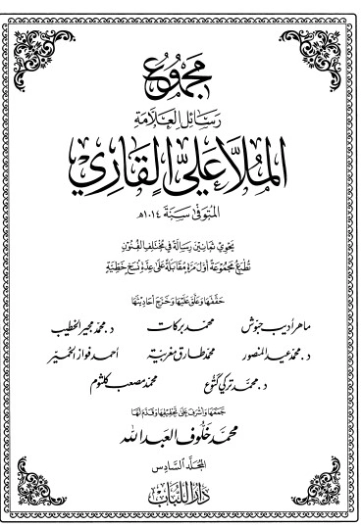 مجموع
رسائل العلامة
الملا علي القاري
المتوفى سنة ١٠١٤هـ
يحوي ثمانين رسالة في مختلف الفنون
تطبع مجموعة أول مرة مقابلة على عدة نسخ خطية
حققها وعلق عليها وخرج أحاديثها
ماهر أديب حبوش محمد بركات د. محمد مجير الخطيب
د. محمد عيد المنصور محمد طارق مغربية أحمد فواز الحمير
د. محمد تركي كتوع محمد مصعب كلثوم
جمعها وأشرف على تحقيقها وقدم لها
محمد خلوف العبد الله
المجلد السادس
دار اللباب